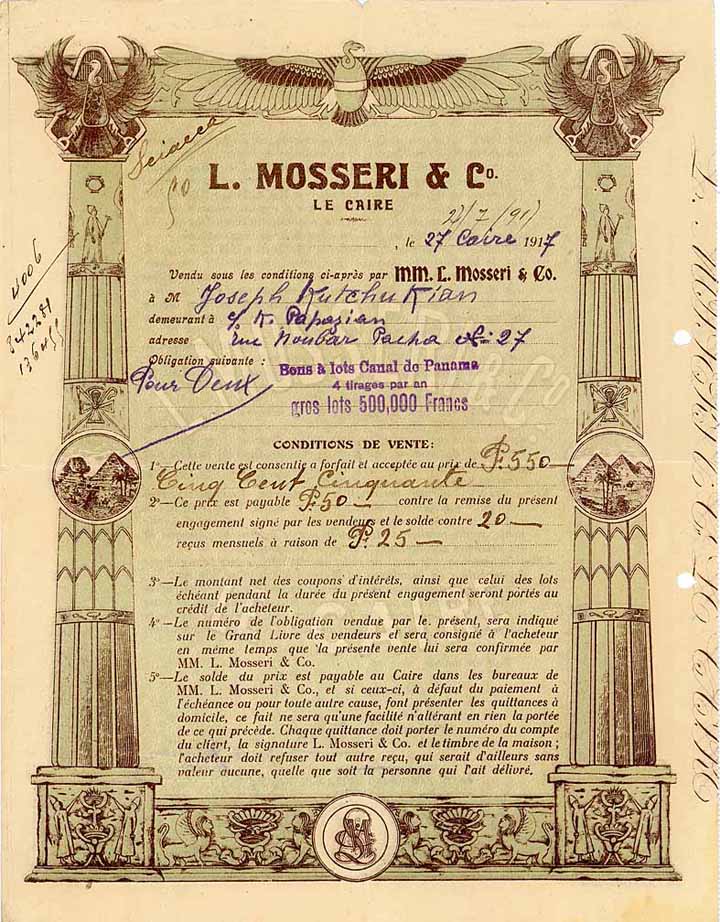 Sciacca
50
4006
342281
136411
L. MOSSERI & Co.
LE CAIRE
, le 27 Caire 1917
Vendu sous les conditions ci-après par MM. L. Mosseri & Co.
à M Joseph Kutchukian
demeurant à c/ K. Papazian
adresse rue Noubar Pacha No 27
Obligation suivante : Bons à lots Canal de Panama
Pour Deux 4 tirages par an
gros lots 500,000 Francs
CONDITIONS DE VENTE:
1o—Cette vente est consentie a forfait et acceptée au prix de P. 550—
Cinq Cent Cinquante—
2o—Ce prix est payable P. 50— contre la remise du présent
engagement signé par les vendeurs et le solde contre 20—
reçus mensuels à raison de P. 25—
3o—Le montant net des coupons d'intérêts, ainsi que celui des lots
échéant pendant la durée du présent engagement seront portés au
crédit de l'acheteur.
4o—Le numéro de l'obligation vendue par le présent, sera indiqué
sur le Grand Livre des vendeurs et sera consigné à l'acheteur
en même temps que la présente vente lui sera confirmée par
MM. L. Mosseri & Co.
5o—Le solde du prix est payable au Caire dans les bureaux de
MM. L. Mosseri & Co., et si ceux-ci, à défaut du paiement à
l'échéance ou pour toute autre cause, font présenter les quittances à
domicile, ce fait ne sera qu'une facilité n'altérant en rien la portée
de ce qui précède. Chaque quittance doit porter le numéro du compte
du client, la signature L. Mosseri & Co. et le timbre de la maison ;
l'acheteur doit refuser tout autre reçu, qui serait d'ailleurs sans
valeur aucune, quelle que soit la personne qui l'ait délivré.